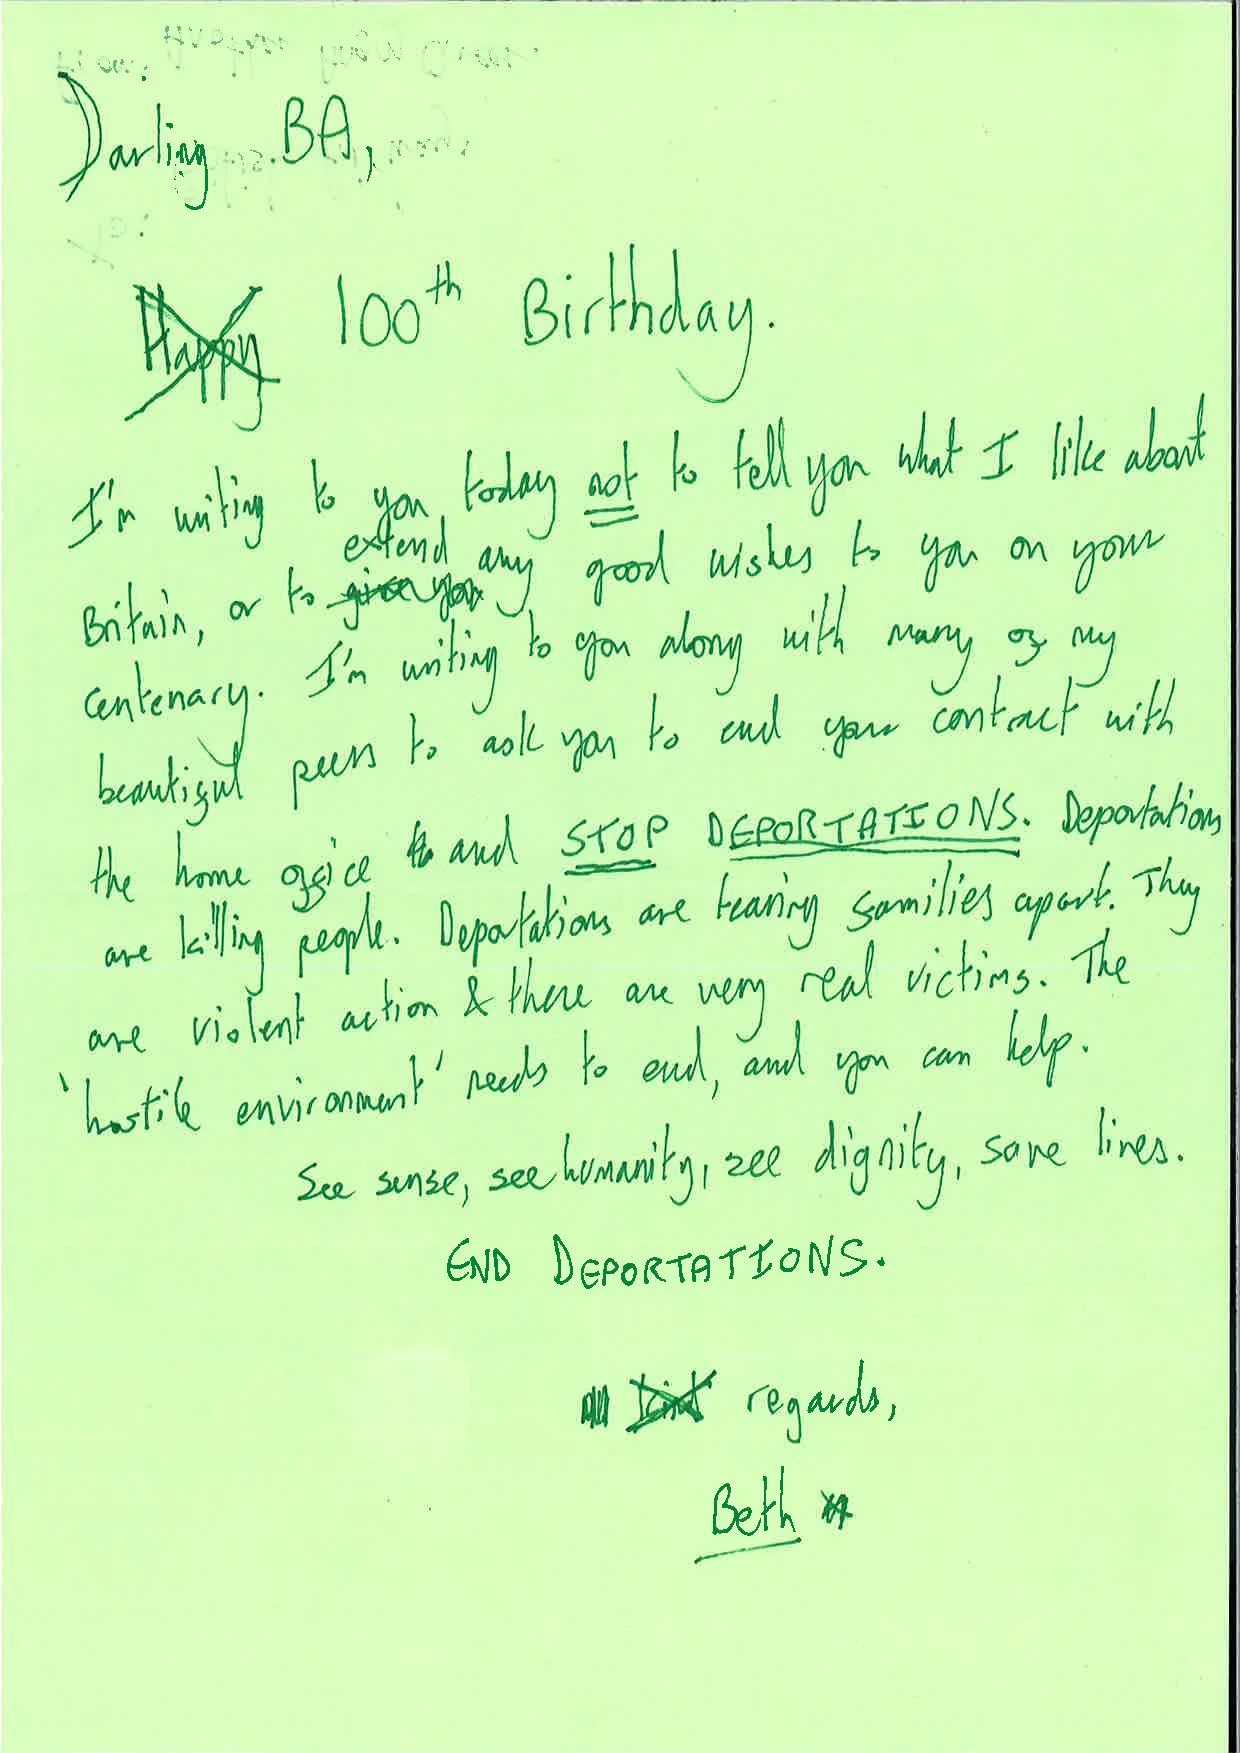 Darling BA,
Happy 100th Birthday.
I'm writing to you today not to tell you what I like about
extend
Britain, or to give you any good wishes to you on your
centenary. I'm writing to you along with many of my
beautiful peers to ask you to end your contract with
the home office to and STOP DEPORTATIONS. Deportations
are killing people. Deportations are tearing families apart. They
are violent action & there are very real victims. The
'hostile environment' needs to end, and you can help.
See sense, see humanity, see dignity, save lives.
END DEPORTATIONS.
Kind regards,
Beth